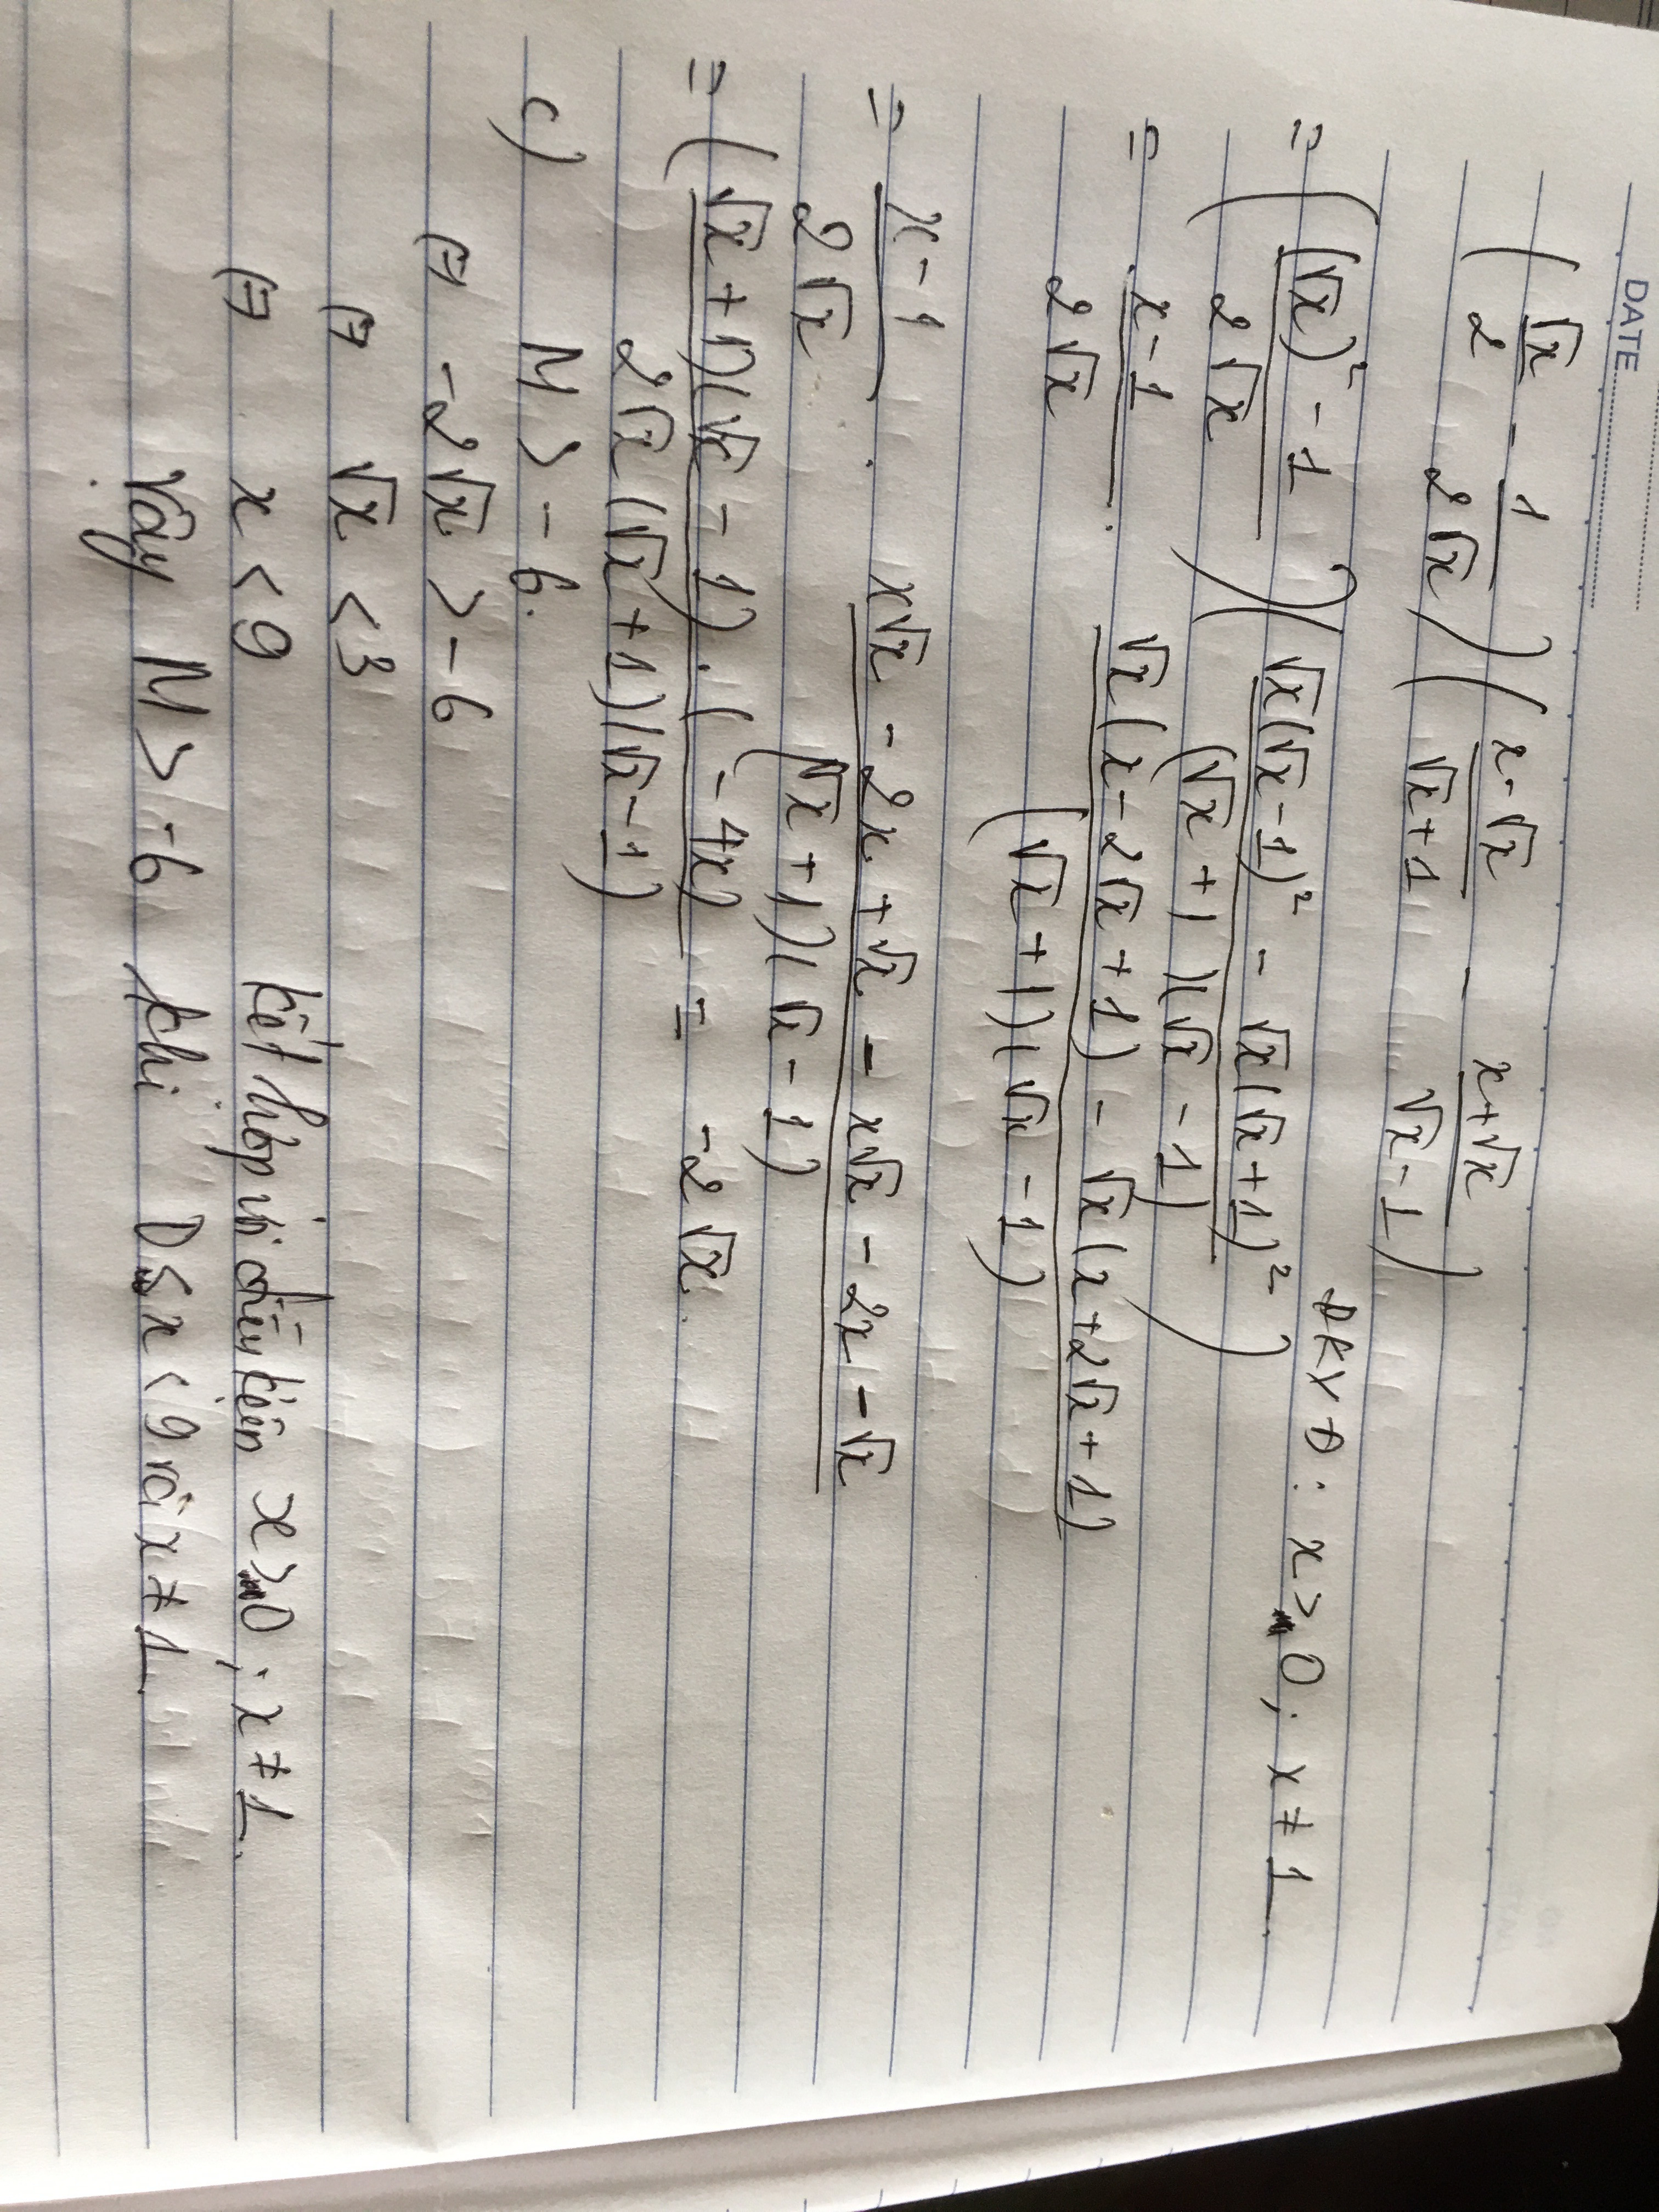 DATE
(√x/2 - 1/2√x)(x-√x/√x+1 - x+√x/√x-1)
ĐKXĐ: x > 0; x ≠ 1.
= ((√x)² - 1/2√x)(√x(√x-1)² - √x(√x+1)²/(√x+1)(√x-1))
= x-1/2√x . √x(x-2√x+1) - √x(x+2√x+1)/(√x+1)(√x-1)
= x-1/2√x . x√x - 2x + √x - x√x - 2x - √x/(√x+1)(√x-1)
= (√x+1)(√x-1).(-4x)/2√x(√x+1)(√x-1) = -2√x.
c) M > -6.
⇔ -2√x > -6
⇔ √x < 3
⇔ x < 9 kết hợp với điều kiện x > 0; x ≠ 1.
Vậy M > -6 khi 0 < x < 9 và x ≠ 1.